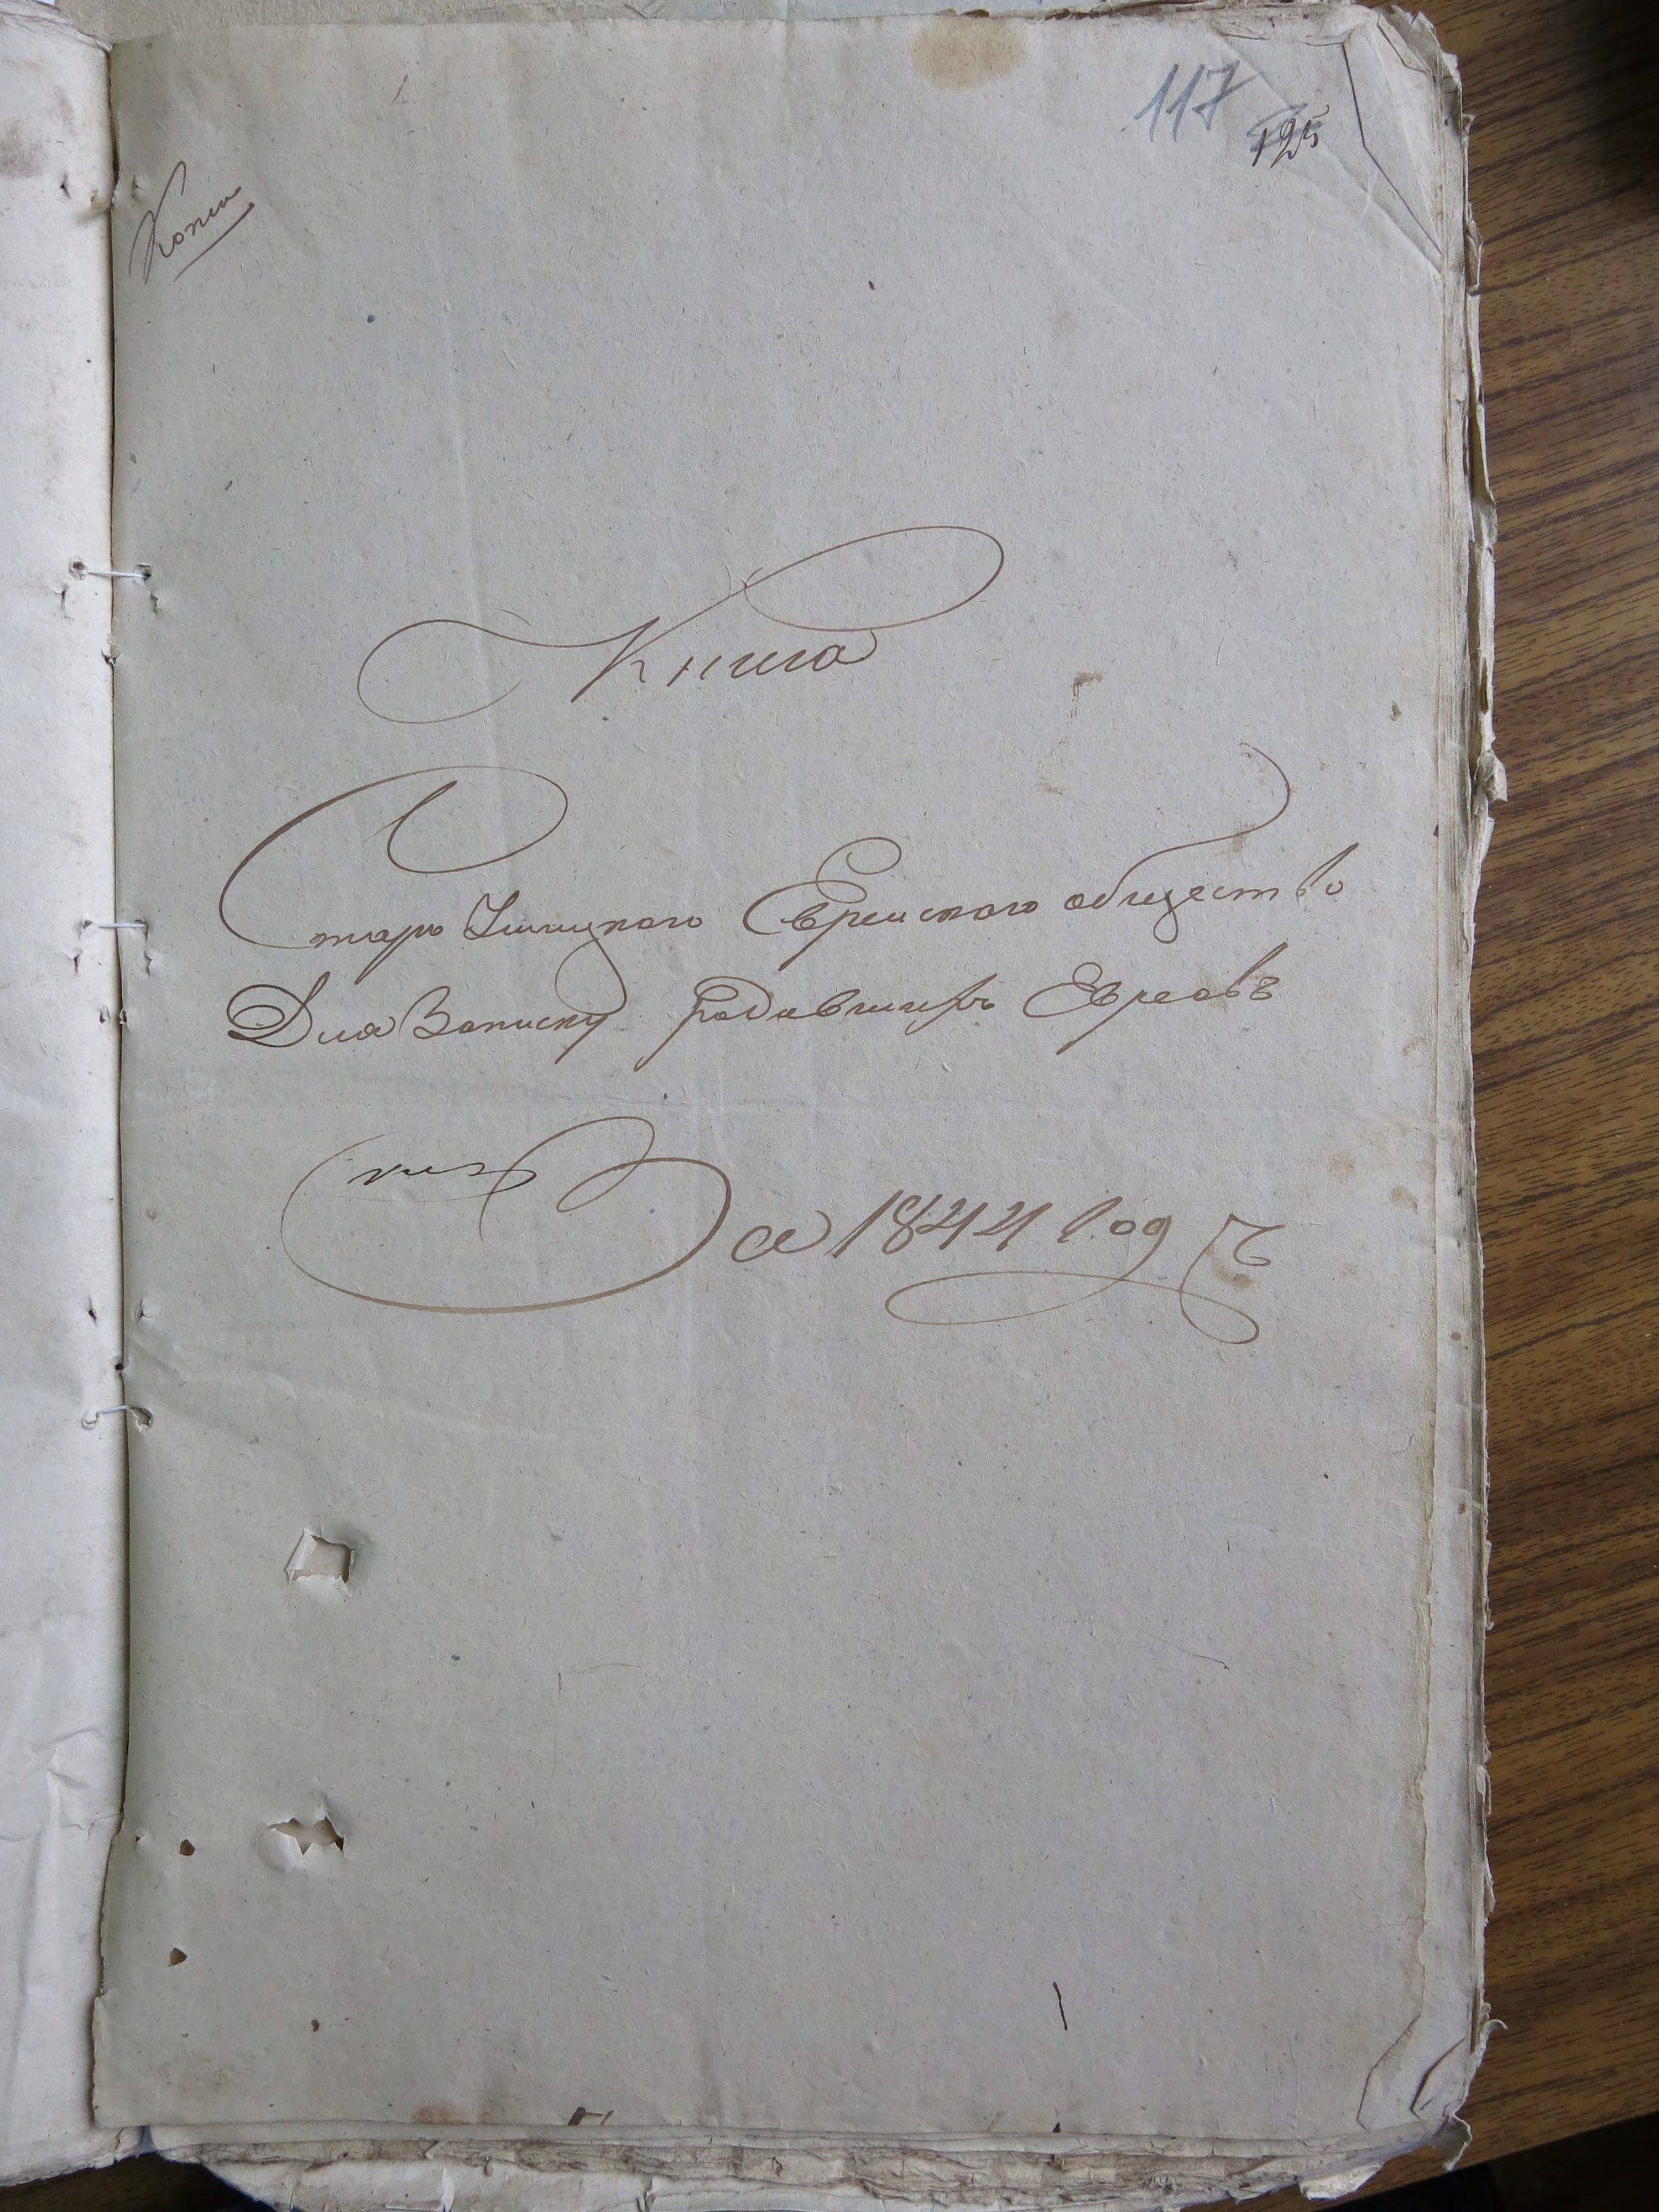 117
125
Копия
Книга
Старо Ушицкого Евреиского общество
Для Записку родившихъ Евреовъ
За 1844 Годъ